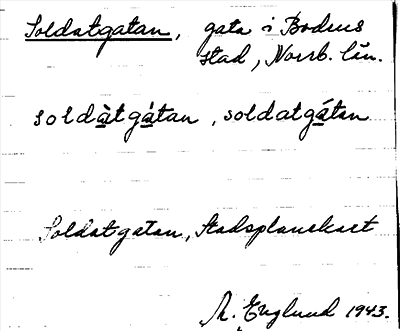 Soldatgatan, gata i Bodens
stad, Norrb. län.
soldàtgátan, soldatgátan
Soldatgatan, Stadsplanekart
R. Englund 1943.